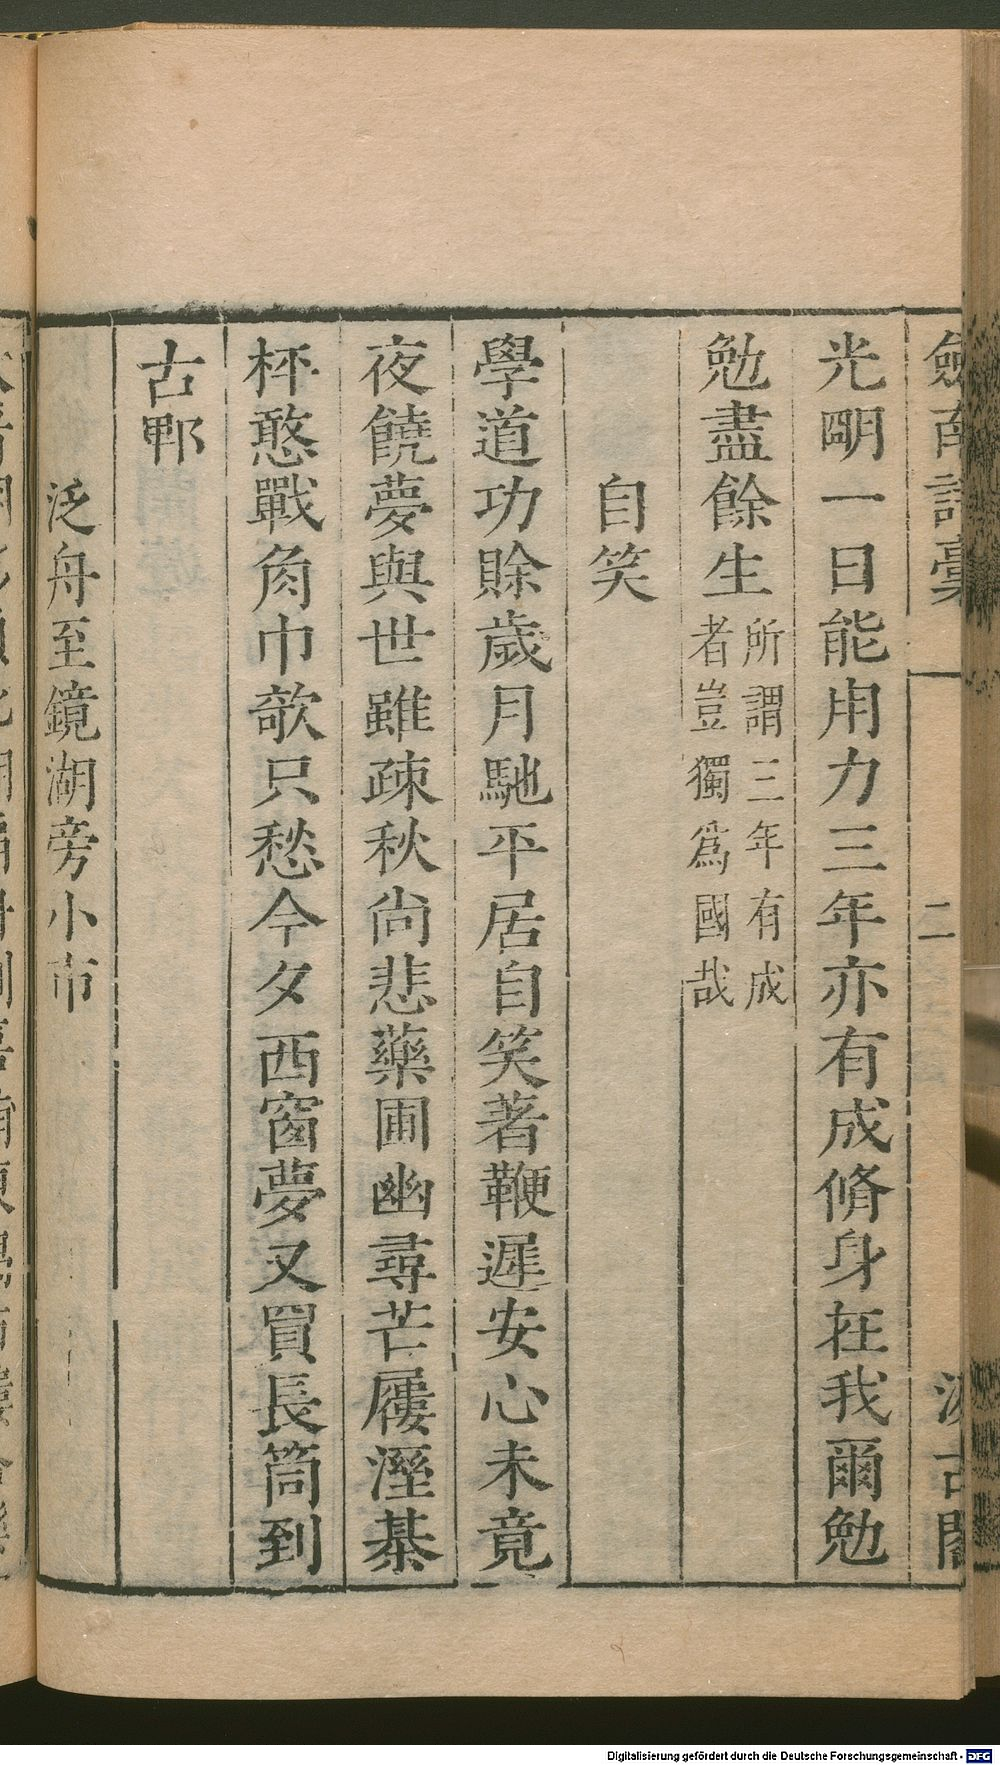 劒南詩稾
二
汲古閣
光明一日能用力三年亦有成脩身在我爾勉
勉盡餘生
所謂三年有成
者豈獨為國哉
自笑
學道功賒歲月馳平居自笑著鞭遲安心未竟
夜饒夢與世雖疎秋尚悲藥圃幽尋芒屨溼棊
枰憨戰角巾欹只愁今夕西窗夢又買長筒到
古郫
泛舟至鏡湖旁小市
Digitalisierung gefördert durch die Deutsche Forschungsgemeinschaft - DFG